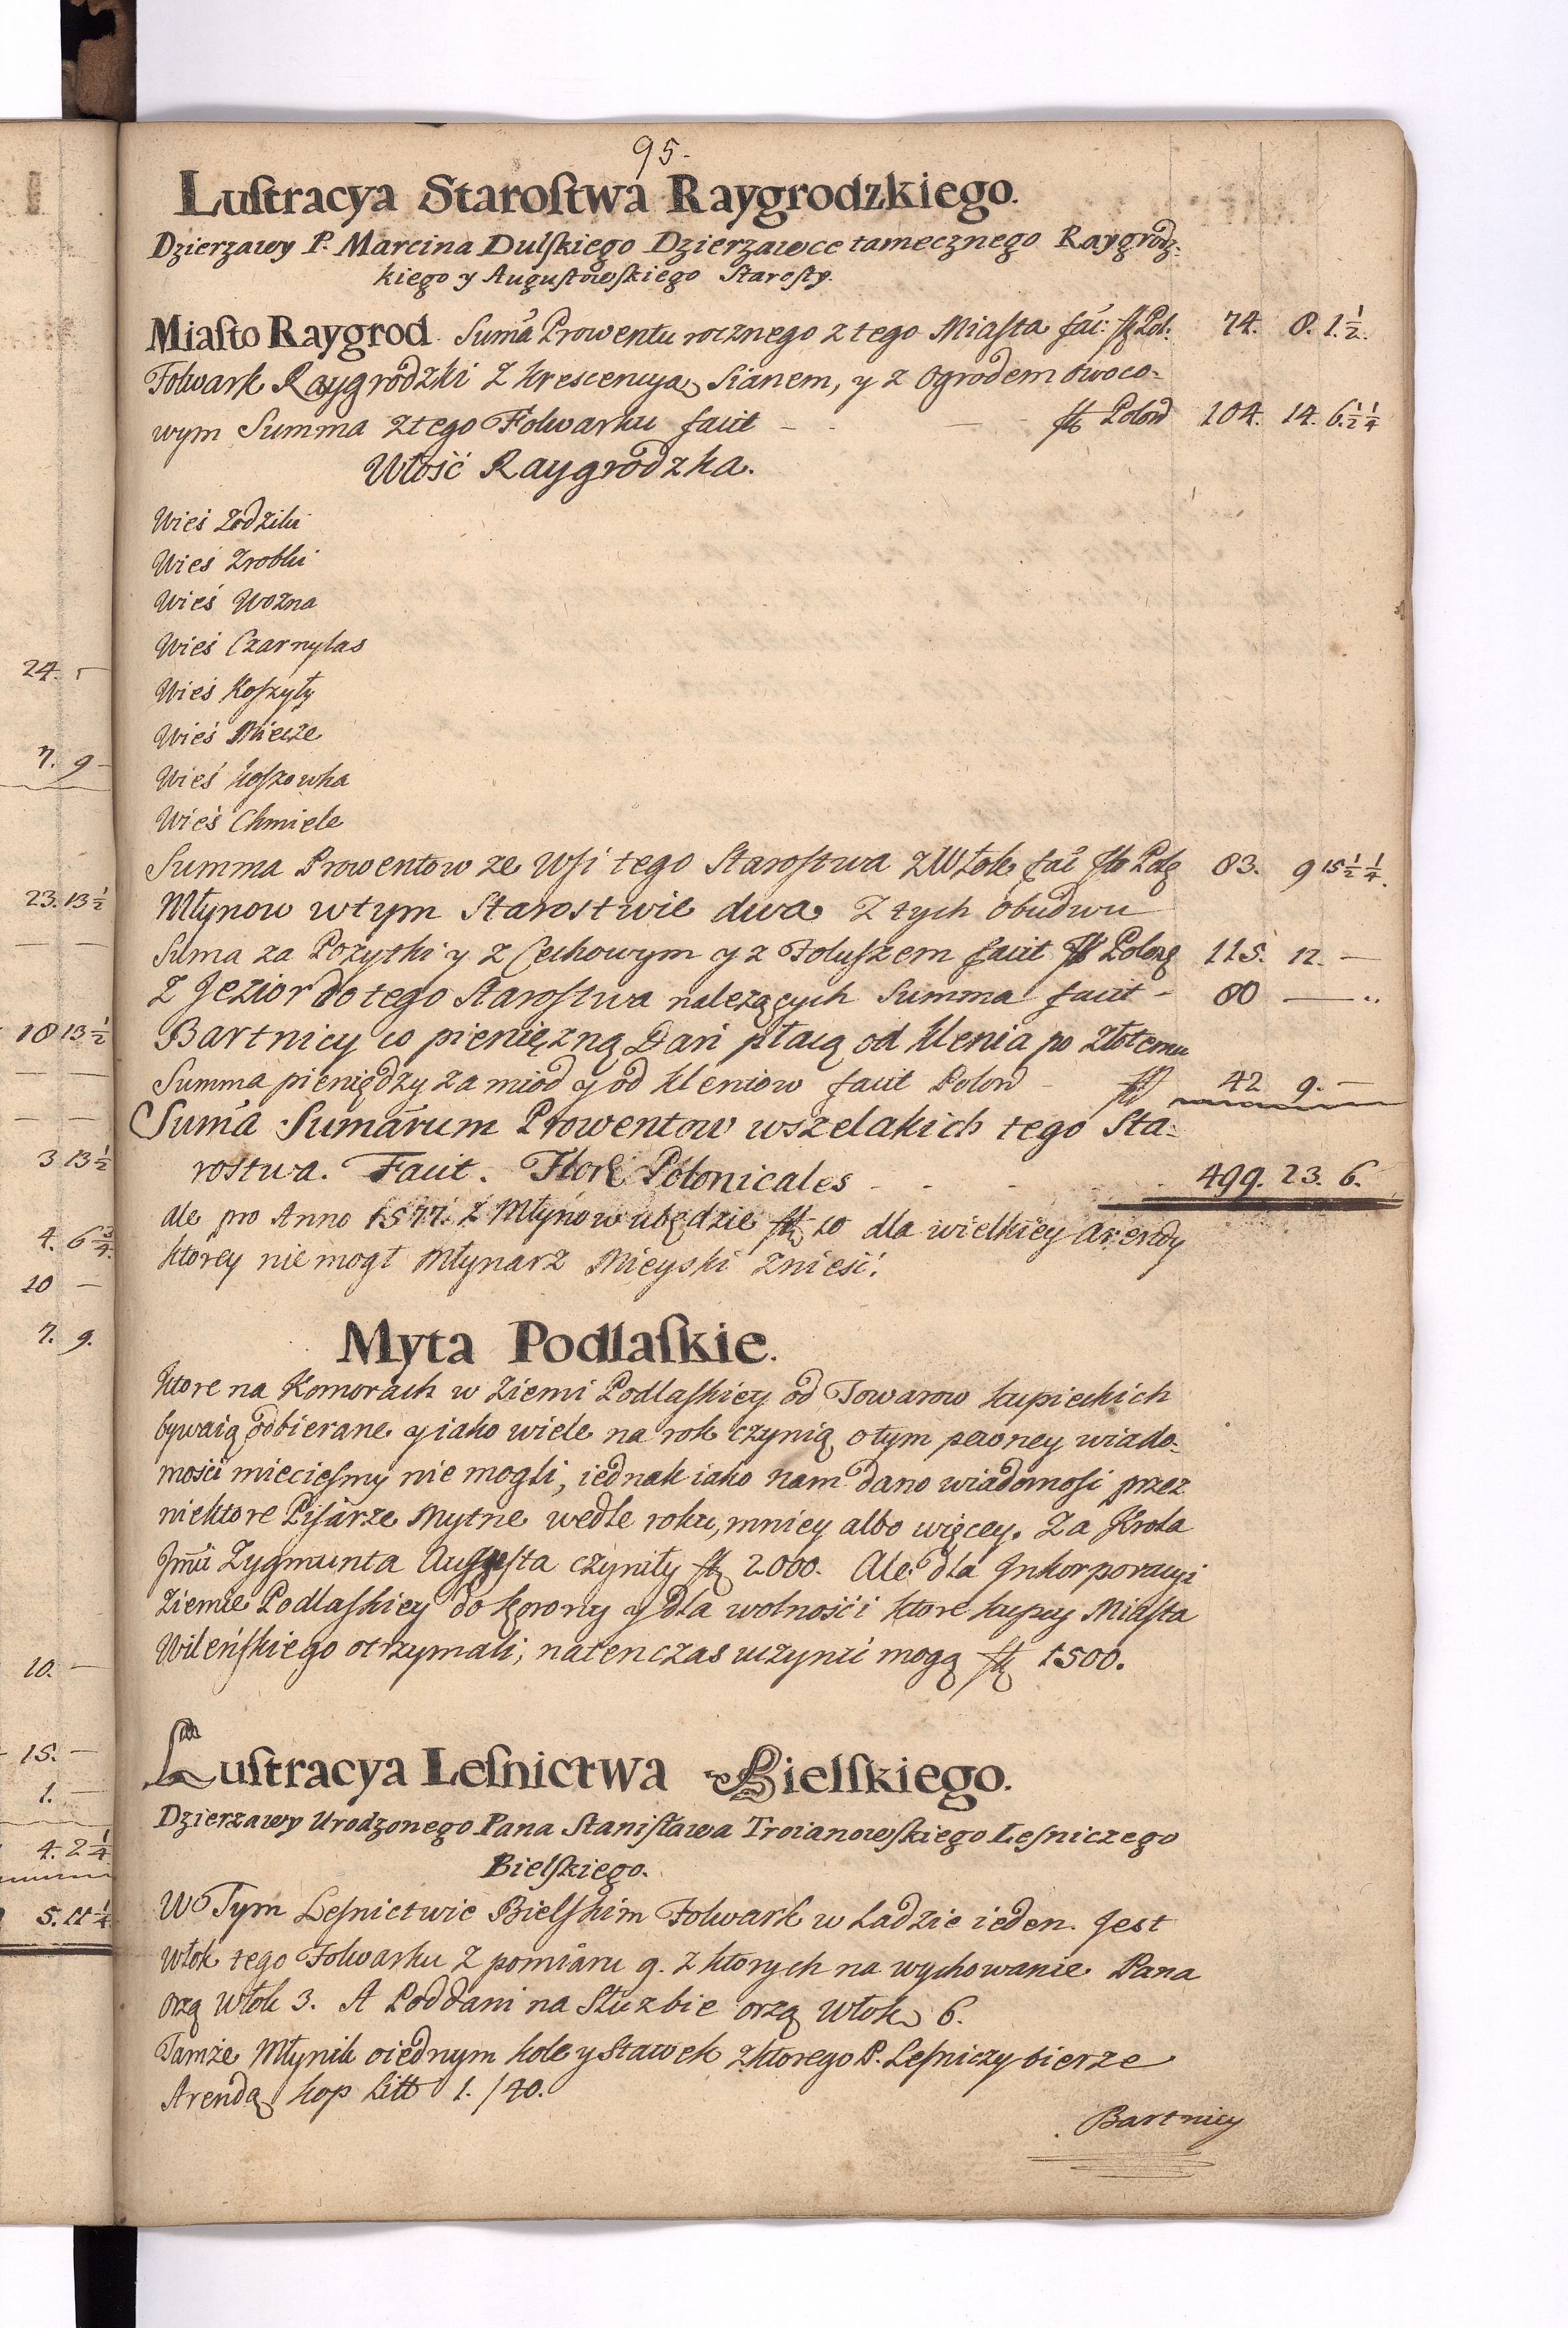 95.
Lustracya Starostwa Raygrodzkiego.
Dzierzawy P. Marcina Dulskiego Dzierzawce tamecznego Raygrodz-
kiego y Augustowskiego Starosty.
Miasto Raygrod. Suma Prowentu rocznego z tego Miasta faci: fl Pol. 74. 8. 1. ½.
Folwark Raygrodzki z krescencyą, Sianem, y z Ogrodem owoco-
wym Summa z tego Folwarku facit - - - fl Polon 104. 14. 6. ½ ¼
Włość Raygrodzka.
Wieś Zodziki
Wieś Zrobki
Wieś Wozna
Wieś Czarnylas
Wieś Koszyły
Wieś Miecze
Wieś Koszowka
Wieś Chmiele
Summa Prowentow ze Wsi tego Starostwa z Włok faci fl Pol 83. 9 15 ½ ¼.
Młynow w tym Starostwie dwa z tych obudwu
Suma za Pozytki y z Cechowym y z Foluszem facit fl Polon 115. 12. —
Z Jezior do tego Starostwa nalezących Summa facit - 80 — ..
Bartnicy co pieniężną Dań płacą od Klenia po złotemu
Summa pieniędzy za miod y od kleniow facit Polon - fl 42 9. —
Suma Sumarum Prowentow wszelakich tego Sta-
rostwa. Facit. Flor Polonicales - - - 499. 23. 6.
ale pro Anno 1577. z Młynow ubędzie fl 10 dla wielkiey Arendy
ktorey nie mogł Młynarz Mieyski znieść.
Myta Podlaskie.
ktore na Komorach w Ziemi Podlaskiey od Towarow kupieckich
bywaią odbierane y iako wiele na rok czynią o tym pewney wiado-
mości miećiesmy nie mogli, iednak iako nam dano wiadomosi przez
niektore Pisarze Mytne wedle roku, mniey albo więcey. Za Krola
Jmci Zygmunta Augusta czyniły fl 2000. Ale dla Inkorporacyi
Ziemie Podlaskiey do Korony y dla wolności ktore kupcy Miasta
Wileńskiego otrzymali; natenczas uczynić mogą fl 1500.
Lustracya Lesnictwa Bielskiego.
Dzierzawy Urodzonego Pana Stanisława Troianowskiego Lesniczego
Bielskiego.
W Tym Lesnictwie Bielskim Folwark w Ladzie ieden. Jest
Włok tego Folwarku z pomiaru 9. z ktorych na wychowanie Pana
orzą Włok 3. A Poddani na Słuzbie orzą Włok 6.
Tamze Młynik o iednym kole y Stawek z ktorego P. Lesniczy bierze
Arendą kop Litt 1. /40.
Bartnicy
24. -
7. 9 -
23. 13 ½
18 13 ½
3 13 ½
4. 6 ¾.
10 —
7. 9.
10. —
15. —
1. —
4. 2 ¼
5. 11 ¼